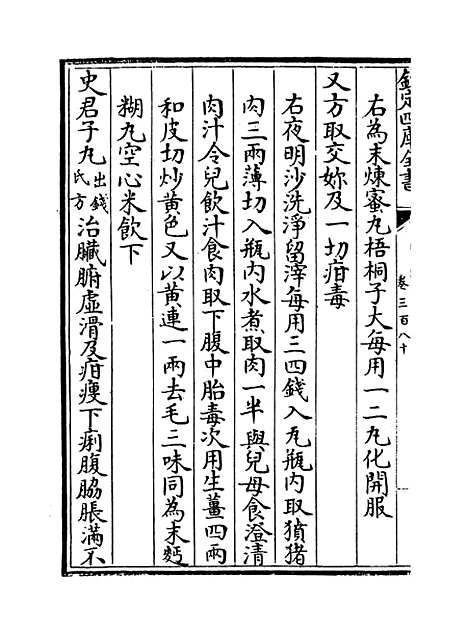 欽定四庫全書
卷三百八十
右為末煉蜜丸梧桐子大每用一二丸化開服
又方取交妳及一切疳毒
右夜明沙洗淨留滓每用三四錢入瓦瓶内取獖猪
肉三兩薄切入瓶内水煮取肉一半與兒母食澄清
肉汁令兒飲汁食肉取下腹中胎毒次用生薑四兩
和皮切炒黄色又以黄連一兩去毛三味同為末麪
糊丸空心米飲下
史君子丸出錢氏方治臟腑虚滑及疳瘦下痢腹脇脹滿不